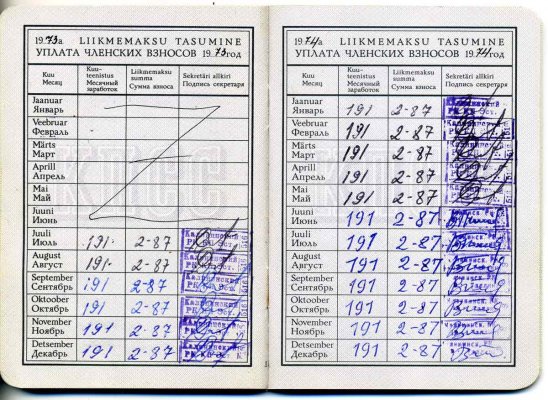 1973a LIIKMEMAKSU TASUMINE
УПЛАТА ЧЛЕНСКИХ ВЗНОСОВ 1973год
Kuu
Месяц
Kuu-
teenistus
Месячный
заработок
Liikmemaksu
summa
Сумма взноса
Sekretäri allkiri
Подпись секретаря
Jaanuar
Январь
Veebruar
Февраль
Märts
Март
Aprill
Апрель
Mai
Май
Juuni
Июнь
Juuli
Июль 191 2-87
August
Август 191 2-87
September
Сентябрь 191 2-87
Oktoober
Октябрь 191 2-87
November
Ноябрь 191 2-87
Detsember
Декабрь 191 2-87
1974a LIIKMEMAKSU TASUMINE
УПЛАТА ЧЛЕНСКИХ ВЗНОСОВ 1974год
Kuu
Месяц
Kuu-
teenistus
Месячный
заработок
Liikmemaksu
summa
Сумма взноса
Sekretäri allkiri
Подпись секретаря
Jaanuar
Январь 191 2-87
Veebruar
Февраль 191 2-87
Märts
Март 191 2-87
Aprill
Апрель 191 2-87
Mai
Май 191 2-87
Juuni
Июнь 191 2-87
Juuli
Июль 191 2-87
August
Август 191 2-87
September
Сентябрь 191 2-87
Oktoober
Октябрь 191 2-87
November
Ноябрь 191 2-87
Detsember
Декабрь 191 2-87